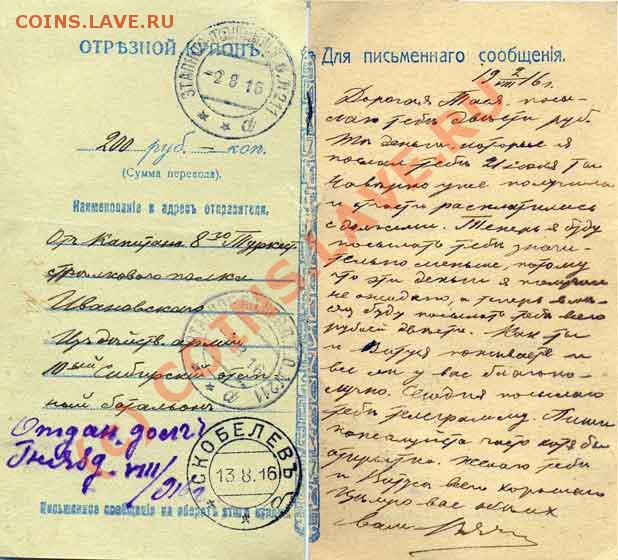 COINS.LAVE.RU
ОТРѢЗНОЙ КУПОНЪ.
-2.8.16
★ ★
200 руб. — коп.
(Сумма перевода).
Наименованіе и адресъ отправителя.
Отъ Капитана 8го Туркест.
стрѣлковаго полка
Ивановскаго
Изъ дѣйств. арміи
10ый Сибирскій этап-
ный баталіонъ
Отдан. долгъ
VIII/
СКОБЕЛЕВЪ
13.8.16
Письменное сообщеніе на оборотѣ этого купона
COINS.LAVE.RU
Для письменнаго сообщенія.
19 2/VIII 16 г.
Дорогая посы-
лаю тебѣ двѣсти руб.
Тѣ деньги, которые я
послалъ тебѣ 21 іюля ты
навѣрно уже получила
и расплатились
съ долгами. Теперь я буду
посылать тебѣ значи-
тельно меньше, потому
что эти деньги я получилъ
не ожидано, а теперь
буду посылать тебѣ всего
рублей двѣсти. Какъ ты
и Витуся поживаете и
все ли у васъ благопо-
лучно. Сегодня посылаю
тебѣ телеграмму. Пиши
пожалуйста часто хотя бы
открытки. Желаю тебѣ
и всего хорошаго
Цѣлую васъ обѣихъ
вашъ
COINS.LAVE.RU